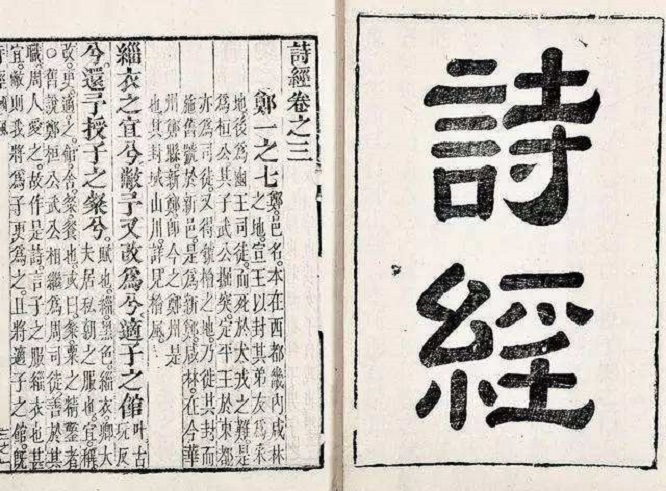 詩經
詩經卷之三
鄭一之七
鄭。邑名。本在西都畿內咸林
之地。宣王以封其弟友爲采
地。後爲幽王司徒。而死於犬戎之難。是
爲桓公。其子武公掘突。定平王於東都。
亦爲司徒。又得虢檜之地。乃徙其封。而
施舊號於新邑。是爲新鄭。咸林。在今華
州鄭縣。新鄭。卽今之鄭州是
也。其封域山川。詳見檜風。
緇衣之宜兮。敝予又改爲兮。適子之館
叶古
玩反
兮。還予授子之粲兮。
賦也。緇。黑色。緇衣。卿大
夫居私朝之服也。宜。稱
改。更。適。之。館。舍。粲。餐也。或曰。粲。粟之精鑿者
○舊說鄭桓公武公。相繼爲周司徒。善於其
職。周人愛之。故作是詩。言子之服緇衣也甚
宜。敝則我將爲子更爲之。且將適子之館。旣